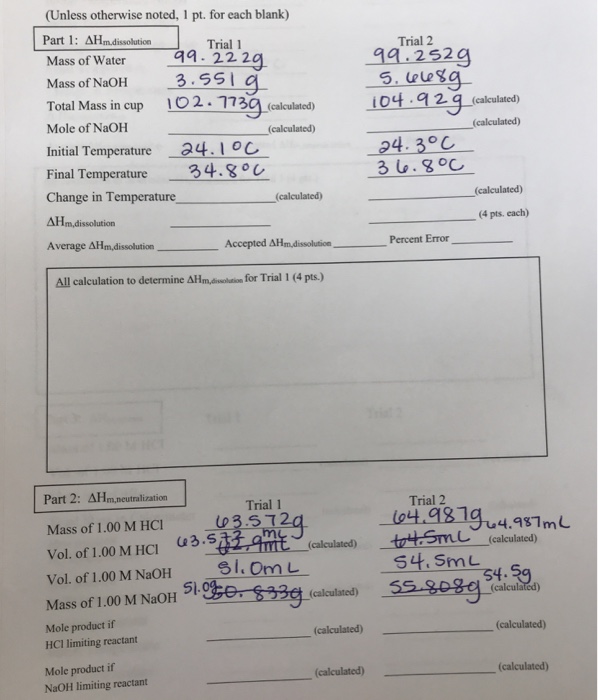 (Unless otherwise noted, 1 pt. for each blank)
Part 1: ΔHm.dissolution Trial 1 Trial 2
Mass of Water 99.222g 99.252g
Mass of NaOH 3.551g 5.668g
Total Mass in cup 102.773g (calculated) 104.92g (calculated)
Mole of NaOH (calculated) (calculated)
Initial Temperature 24.1°C 24.3°C
Final Temperature 34.8°C 36.8°C
Change in Temperature (calculated) (calculated)
ΔHm,dissolution (4 pts. each)
Average ΔHm,dissolution Accepted ΔHm,dissolution Percent Error
All calculation to determine ΔHm,dissolution for Trial 1 (4 pts.)
Part 2: ΔHm,neutralization Trial 1 Trial 2
Mass of 1.00 M HCl 63.572g 64.987g
Vol. of 1.00 M HCl 63.572 mL (calculated) 64.5mL 64.987mL (calculated)
Vol. of 1.00 M NaOH 51.0mL 54.5mL
Mass of 1.00 M NaOH 51.0g 50.833g (calculated) 55.808g 54.5g (calculated)
Mole product if
HCl limiting reactant (calculated) (calculated)
Mole product if
NaOH limiting reactant (calculated) (calculated)